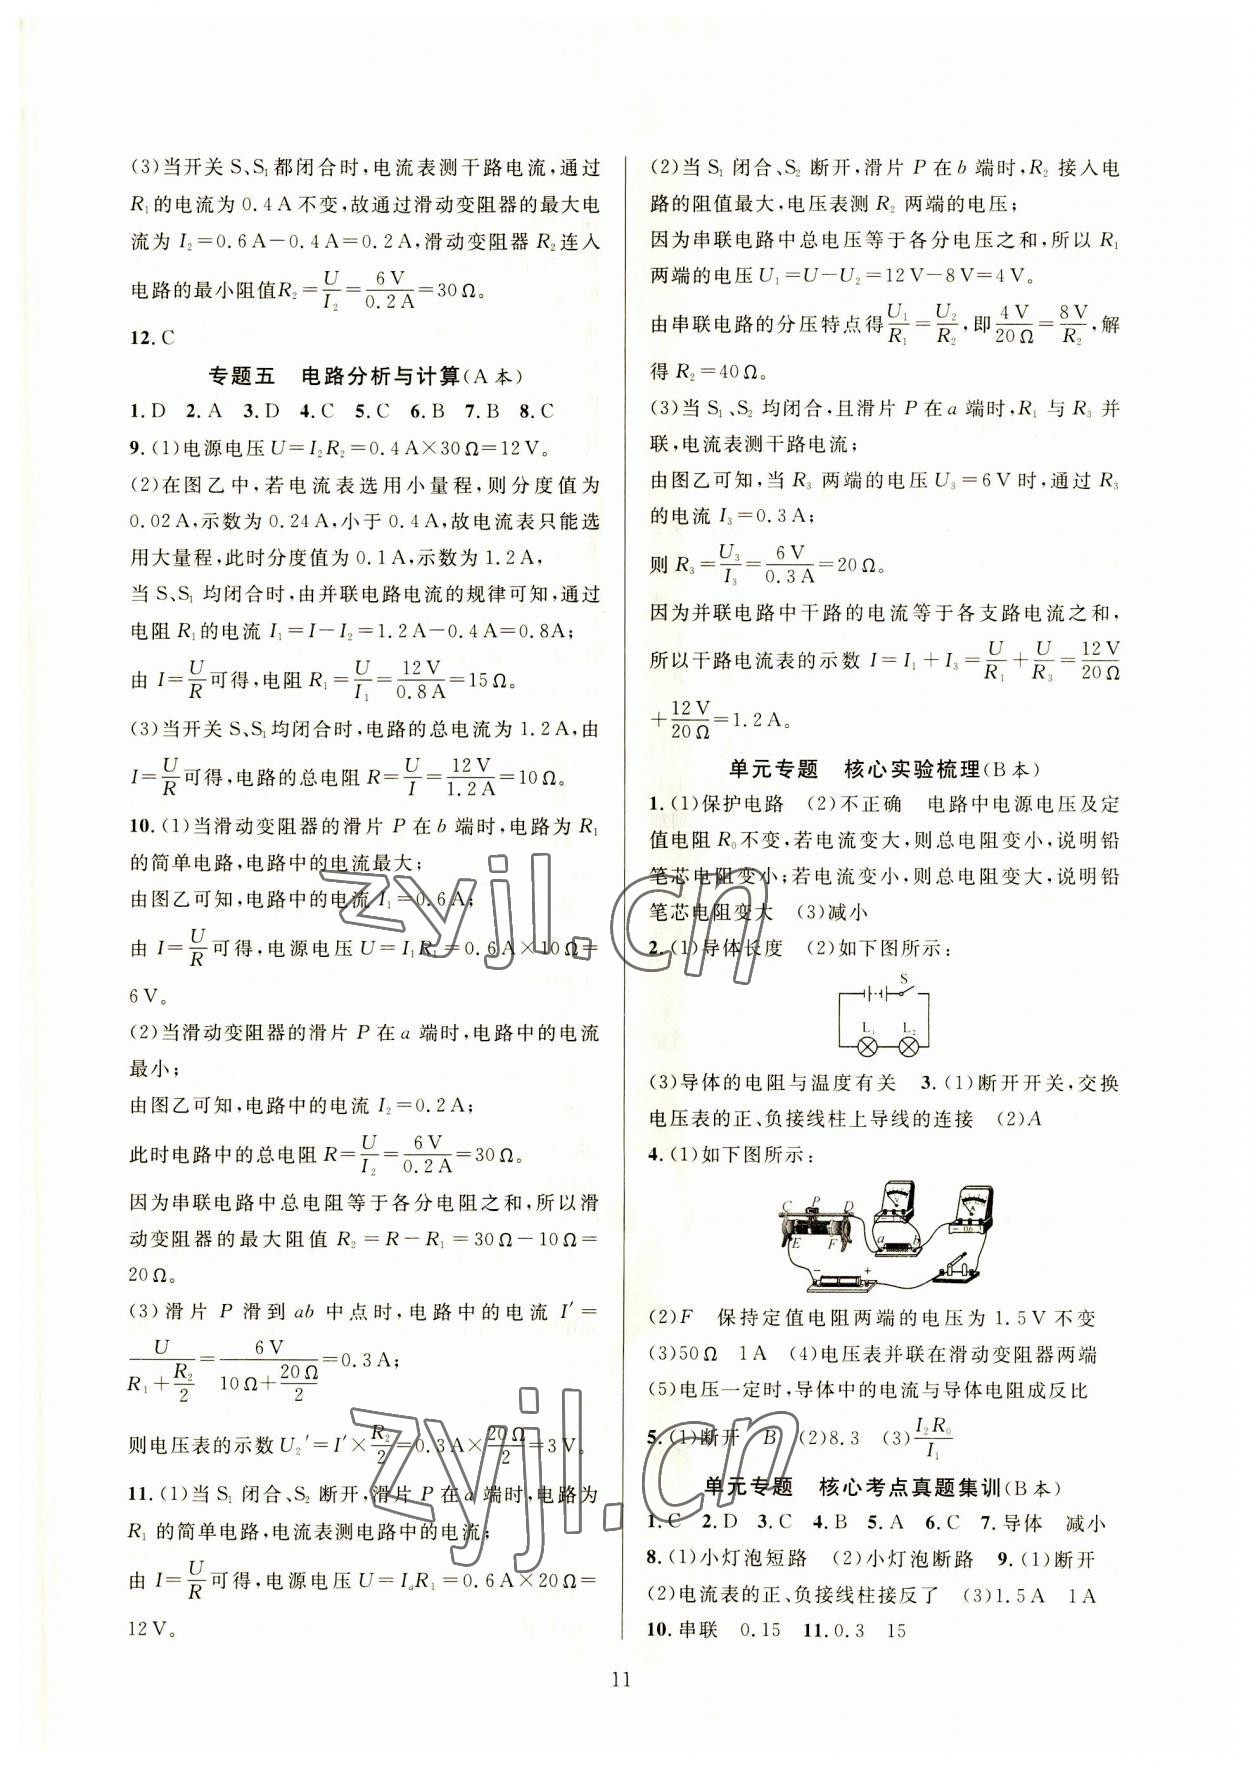 (3)当开关 S、S₁都闭合时,电流表测干路电流,通过
R₁的电流为 0.4 A 不变,故通过滑动变阻器的最大电
流为 I₂=0.6 A-0.4 A=0.2 A,滑动变阻器 R₂连入
电路的最小阻值R₂=U/I₂=6 V/0.2 A=30 Ω。
12. C
专题五 电路分析与计算(A 本)
1. D 2. A 3. D 4. C 5. C 6. B 7. B 8. C
9. (1)电源电压 U=I₂R₂=0.4 A×30 Ω=12 V。
(2)在图乙中,若电流表选用小量程,则分度值为
0.02 A,示数为 0.24 A,小于 0.4 A,故电流表只能选
用大量程,此时分度值为 0.1 A,示数为 1.2 A,
当 S、S₁ 均闭合时,由并联电路电流的规律可知,通过
电阻 R₁的电流 I₁=I-I₂=1.2 A-0.4 A=0.8A;
由 I=U/R可得,电阻 R₁=U/I₁=12 V/0.8 A=15 Ω。
(3)当开关 S、S₁均闭合时,电路的总电流为 1.2 A,由
I=U/R可得,电路的总电阻 R=U/I=12 V/1.2 A=10 Ω。
10. (1)当滑动变阻器的滑片 P 在 b 端时,电路为 R₁
的简单电路,电路中的电流最大;
由图乙可知,电路中的电流 I₁=0.6 A;
由 I=U/R可得,电源电压 U=I₁R₁=0.6 A×10 Ω=
6 V。
(2)当滑动变阻器的滑片 P 在 a 端时,电路中的电流
最小;
由图乙可知,电路中的电流 I₂=0.2 A;
此时电路中的总电阻 R=U/I₂=6 V/0.2 A=30 Ω。
因为串联电路中总电阻等于各分电阻之和,所以滑
动变阻器的最大阻值 R₂=R-R₁=30 Ω-10 Ω=
20 Ω。
(3)滑片 P 滑到 ab 中点时,电路中的电流 I′=
U/(R₁+R₂/2)=6 V/(10 Ω+20 Ω/2)=0.3 A;
则电压表的示数 U₂′=I′×R₂/2=0.3 A×20 Ω/2=3 V。
11. (1)当 S₁ 闭合、S₂ 断开,滑片 P 在 a 端时,电路为
R₁ 的简单电路,电流表测电路中的电流;
由 I=U/R可得,电源电压 U=IₐR₁=0.6 A×20 Ω=
12 V。
(2)当 S₁ 闭合、S₂ 断开,滑片 P 在 b 端时,R₂ 接入电
路的阻值最大,电压表测 R₂ 两端的电压;
因为串联电路中总电压等于各分电压之和,所以 R₁
两端的电压 U₁=U-U₂=12 V-8 V=4 V。
由串联电路的分压特点得U₁/R₁=U₂/R₂,即4 V/20 Ω=8 V/R₂,解
得 R₂=40 Ω。
(3)当 S₁、S₂ 均闭合,且滑片 P 在 a 端时,R₁ 与 R₃ 并
联,电流表测干路电流;
由图乙可知,当 R₃ 两端的电压 U₃=6 V 时,通过 R₃
的电流 I₃=0.3 A;
则 R₃=U₃/I₃=6 V/0.3 A=20 Ω。
因为并联电路中干路的电流等于各支路电流之和,
所以干路电流表的示数 I=I₁+I₃=U/R₁+U/R₃=12 V/20 Ω
+12 V/20 Ω=1.2 A。
单元专题 核心实验梳理(B 本)
1. (1)保护电路 (2)不正确 电路中电源电压及定
值电阻 R₀不变,若电流变大,则总电阻变小,说明铅
笔芯电阻变小;若电流变小,则总电阻变大,说明铅
笔芯电阻变大 (3)减小
2. (1)导体长度 (2)如下图所示:
S
L₁ L₂
(3)导体的电阻与温度有关 3. (1)断开开关,交换
电压表的正、负接线柱上导线的连接 (2)A
4. (1)如下图所示:
C P D
V
A
E F a b
- 0.6
- +
(2)F 保持定值电阻两端的电压为 1.5 V 不变
(3)50 Ω 1 A (4)电压表并联在滑动变阻器两端
(5)电压一定时,导体中的电流与导体电阻成反比
5. (1)断开 B (2)8.3 (3)I₂R₀/I₁
单元专题 核心考点真题集训(B 本)
1. C 2. D 3. C 4. B 5. A 6. C 7. 导体 减小
8. (1)小灯泡短路 (2)小灯泡断路 9. (1)断开
(2)电流表的正、负接线柱接反了 (3)1.5 A 1 A
10. 串联 0.15 11. 0.3 15
11
zyjl.cn
zyjl.cn